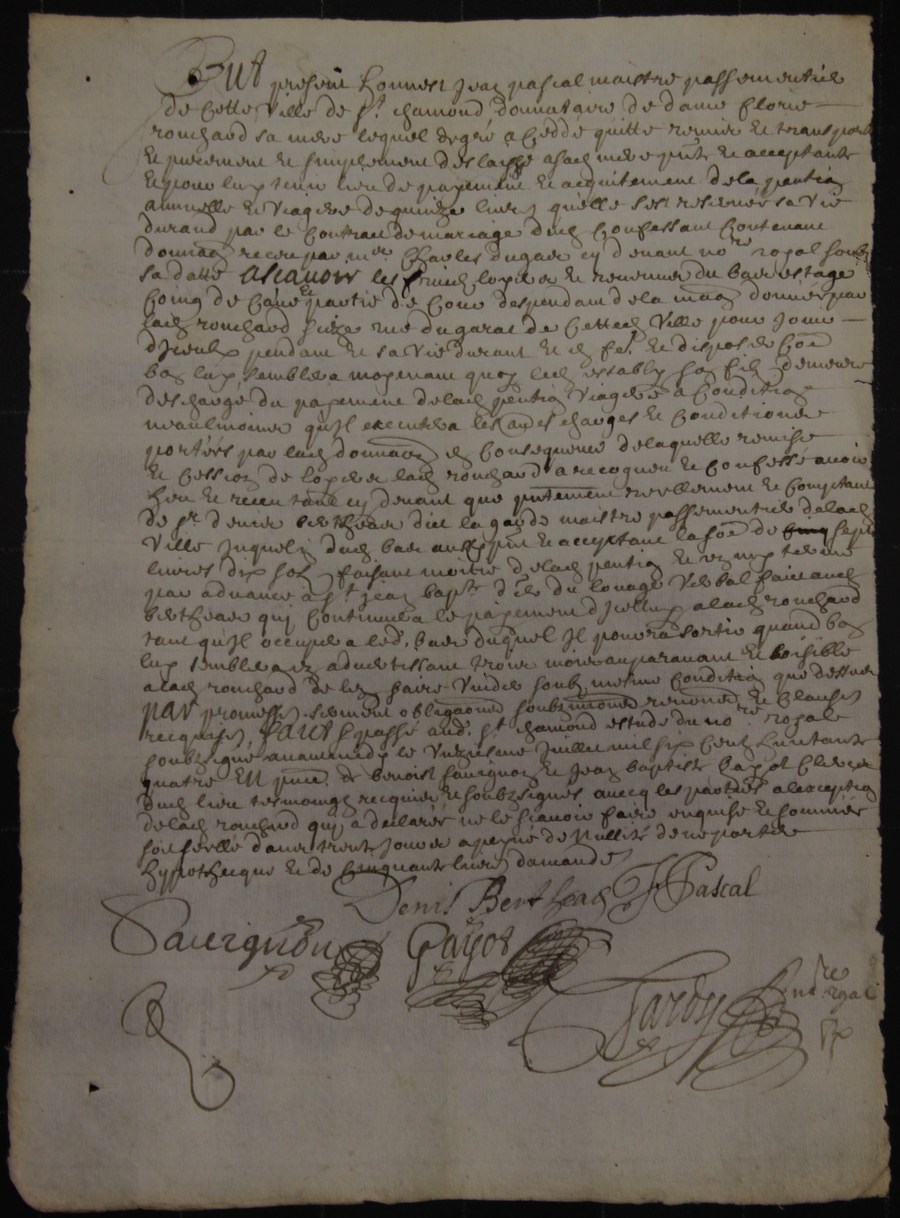 Fut present honnest Jean pascal maistre passementier
de cette ville de st chamond donnataire de dame florie
ronchard sa mere lequel de gre a ceddé quitte remis et transporté
et purement et simplement deslaissé a sad mere pnte et acceptante
et pour luy tenir lieu de payement et acquitement de la pention
annuelle et viagere de quinze livres qu'elle sest reservée sa vie
durand par le contract de mariage dud confessant contenant
donnaon receu par me Charles dugas cy devant nore royal soubz
sa datte Ascavoir les fruictz loyer et revenus du bas estage
et partie de cour despendant de la maison donnée par
lad ronchard size rue du garat de cetted ville pour jouir
d'Iceulx pendant et sa vie durant et en fe. et disposer come
bon luy semblera moyenant quoy led estably son filz demeure
deschargé du payement de lad pention viagere a condition
neaulmoins qu'Il executera les aues charges et conditions
portées par lad donnaon en consequence de laquelle remise
et cession de loyer lad ronchard a recogneu et confessé avoir
heu et receu tant cy devant que pntement reellement et comptant
de sr denis berthean dict la garde maistre passementier de lad
ville dud bas aussy pnt et acceptant la soe de sept
livres dix solz faisant moitié de lad pention et
par advance a st jean bapte du louage verbal faict aud
berthean qui continuera le payement d'Icelluy a lad ronchard
tant qu'Il occupera led. bas duquel Il pourra sortir quand bon
luy semblera en advertissant trois mois auparavant et loisible
a lad ronchard de len faire vuider soubz mesme condition que dessus
Par promesses serment obligaons soubzmions renonons et clauses
requises, Faict et passé aud. st chamond estude du nore royal
soubzsigné avant midy le unziesme Juillet mil six centz huictante
quatre En pnce de benoist sauvignon et Jean baptiste payot clercz
dud lieu tesmoingz requis et soubzsignés avecq les parties a lexception
de lad ronchard qui a declaré ne le scavoir faire enquise et sommée
soit scellé dans trente jours a peyne de nullité de ne porter
hypothecque et de cinquante livres damande
Denis Berthean J Pascal
Sauvignon Payot
Tardy nore royal